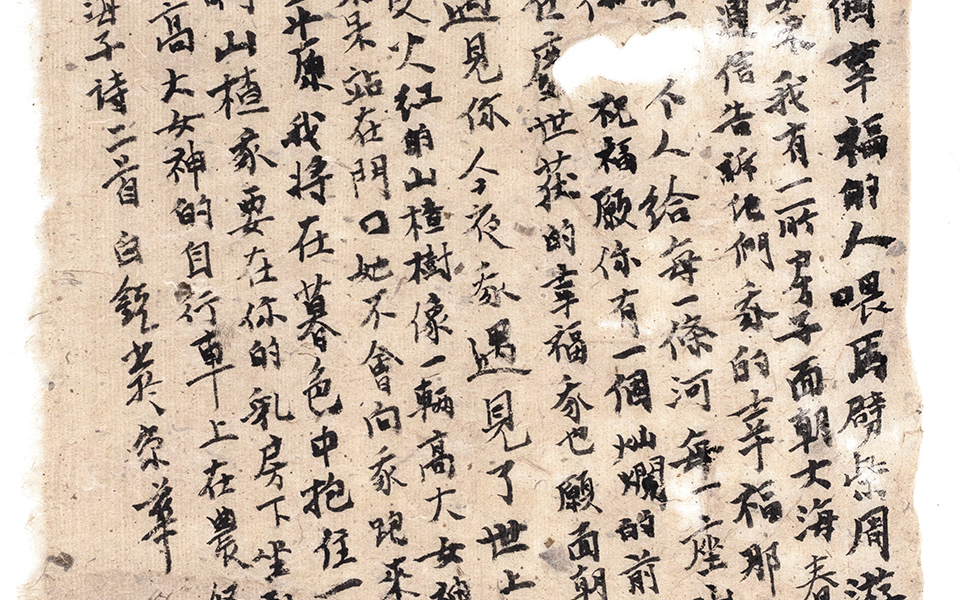 個幸福的人喂馬劈柴周游
我有一所房子面朝大海春
信告訴他們我的幸福那
个人給每一條河每一座
祝福願你有一個灿爛的前
在塵世获的幸福我也願面朝
遇見你 夜我遇見了世上
火红的山楂樹像一輛高大女神
呆站在門口她不會向我跑來
原我将在暮色中抱住一
山楂我要在你的乳房下坐
高大女神的自行車上在農
海子诗二首 白